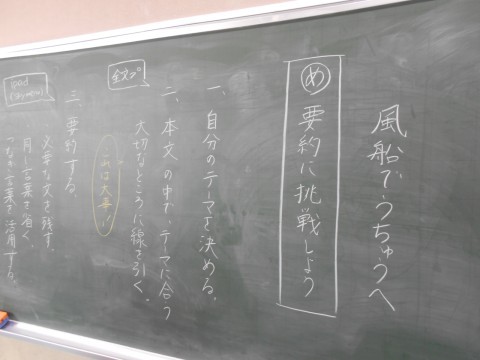 風船でうちゅうへ
め 要約に挑戦しよう
一、自分のテーマを決める。
二、本文の中で、テーマに合う
大切なところに線を引く。
ここは大事!
三、要約する。
必要な文を残す。
同じ言葉を省く。
つなぎ言葉を活用する。